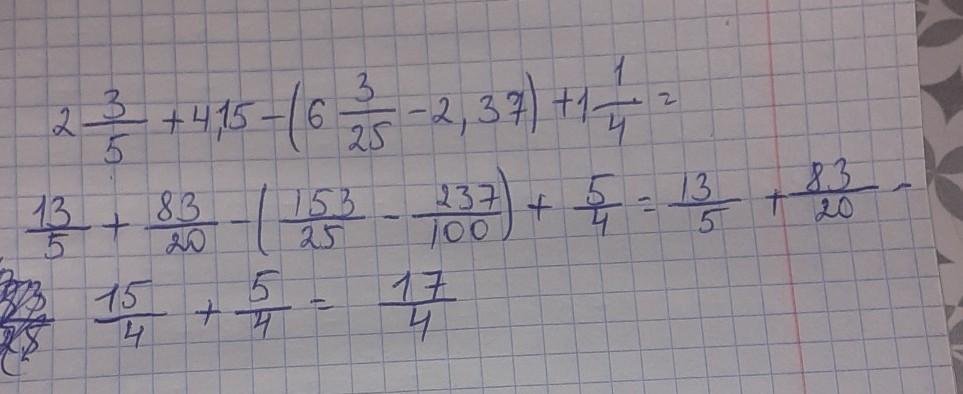 2 3/5 + 4,15 - (6 3/25 - 2,37) + 1 1/4 =
13/5 + 83/20 - (153/25 - 237/100) + 5/4 = 13/5 + 83/20 -
15/4 + 5/4 = 17/4